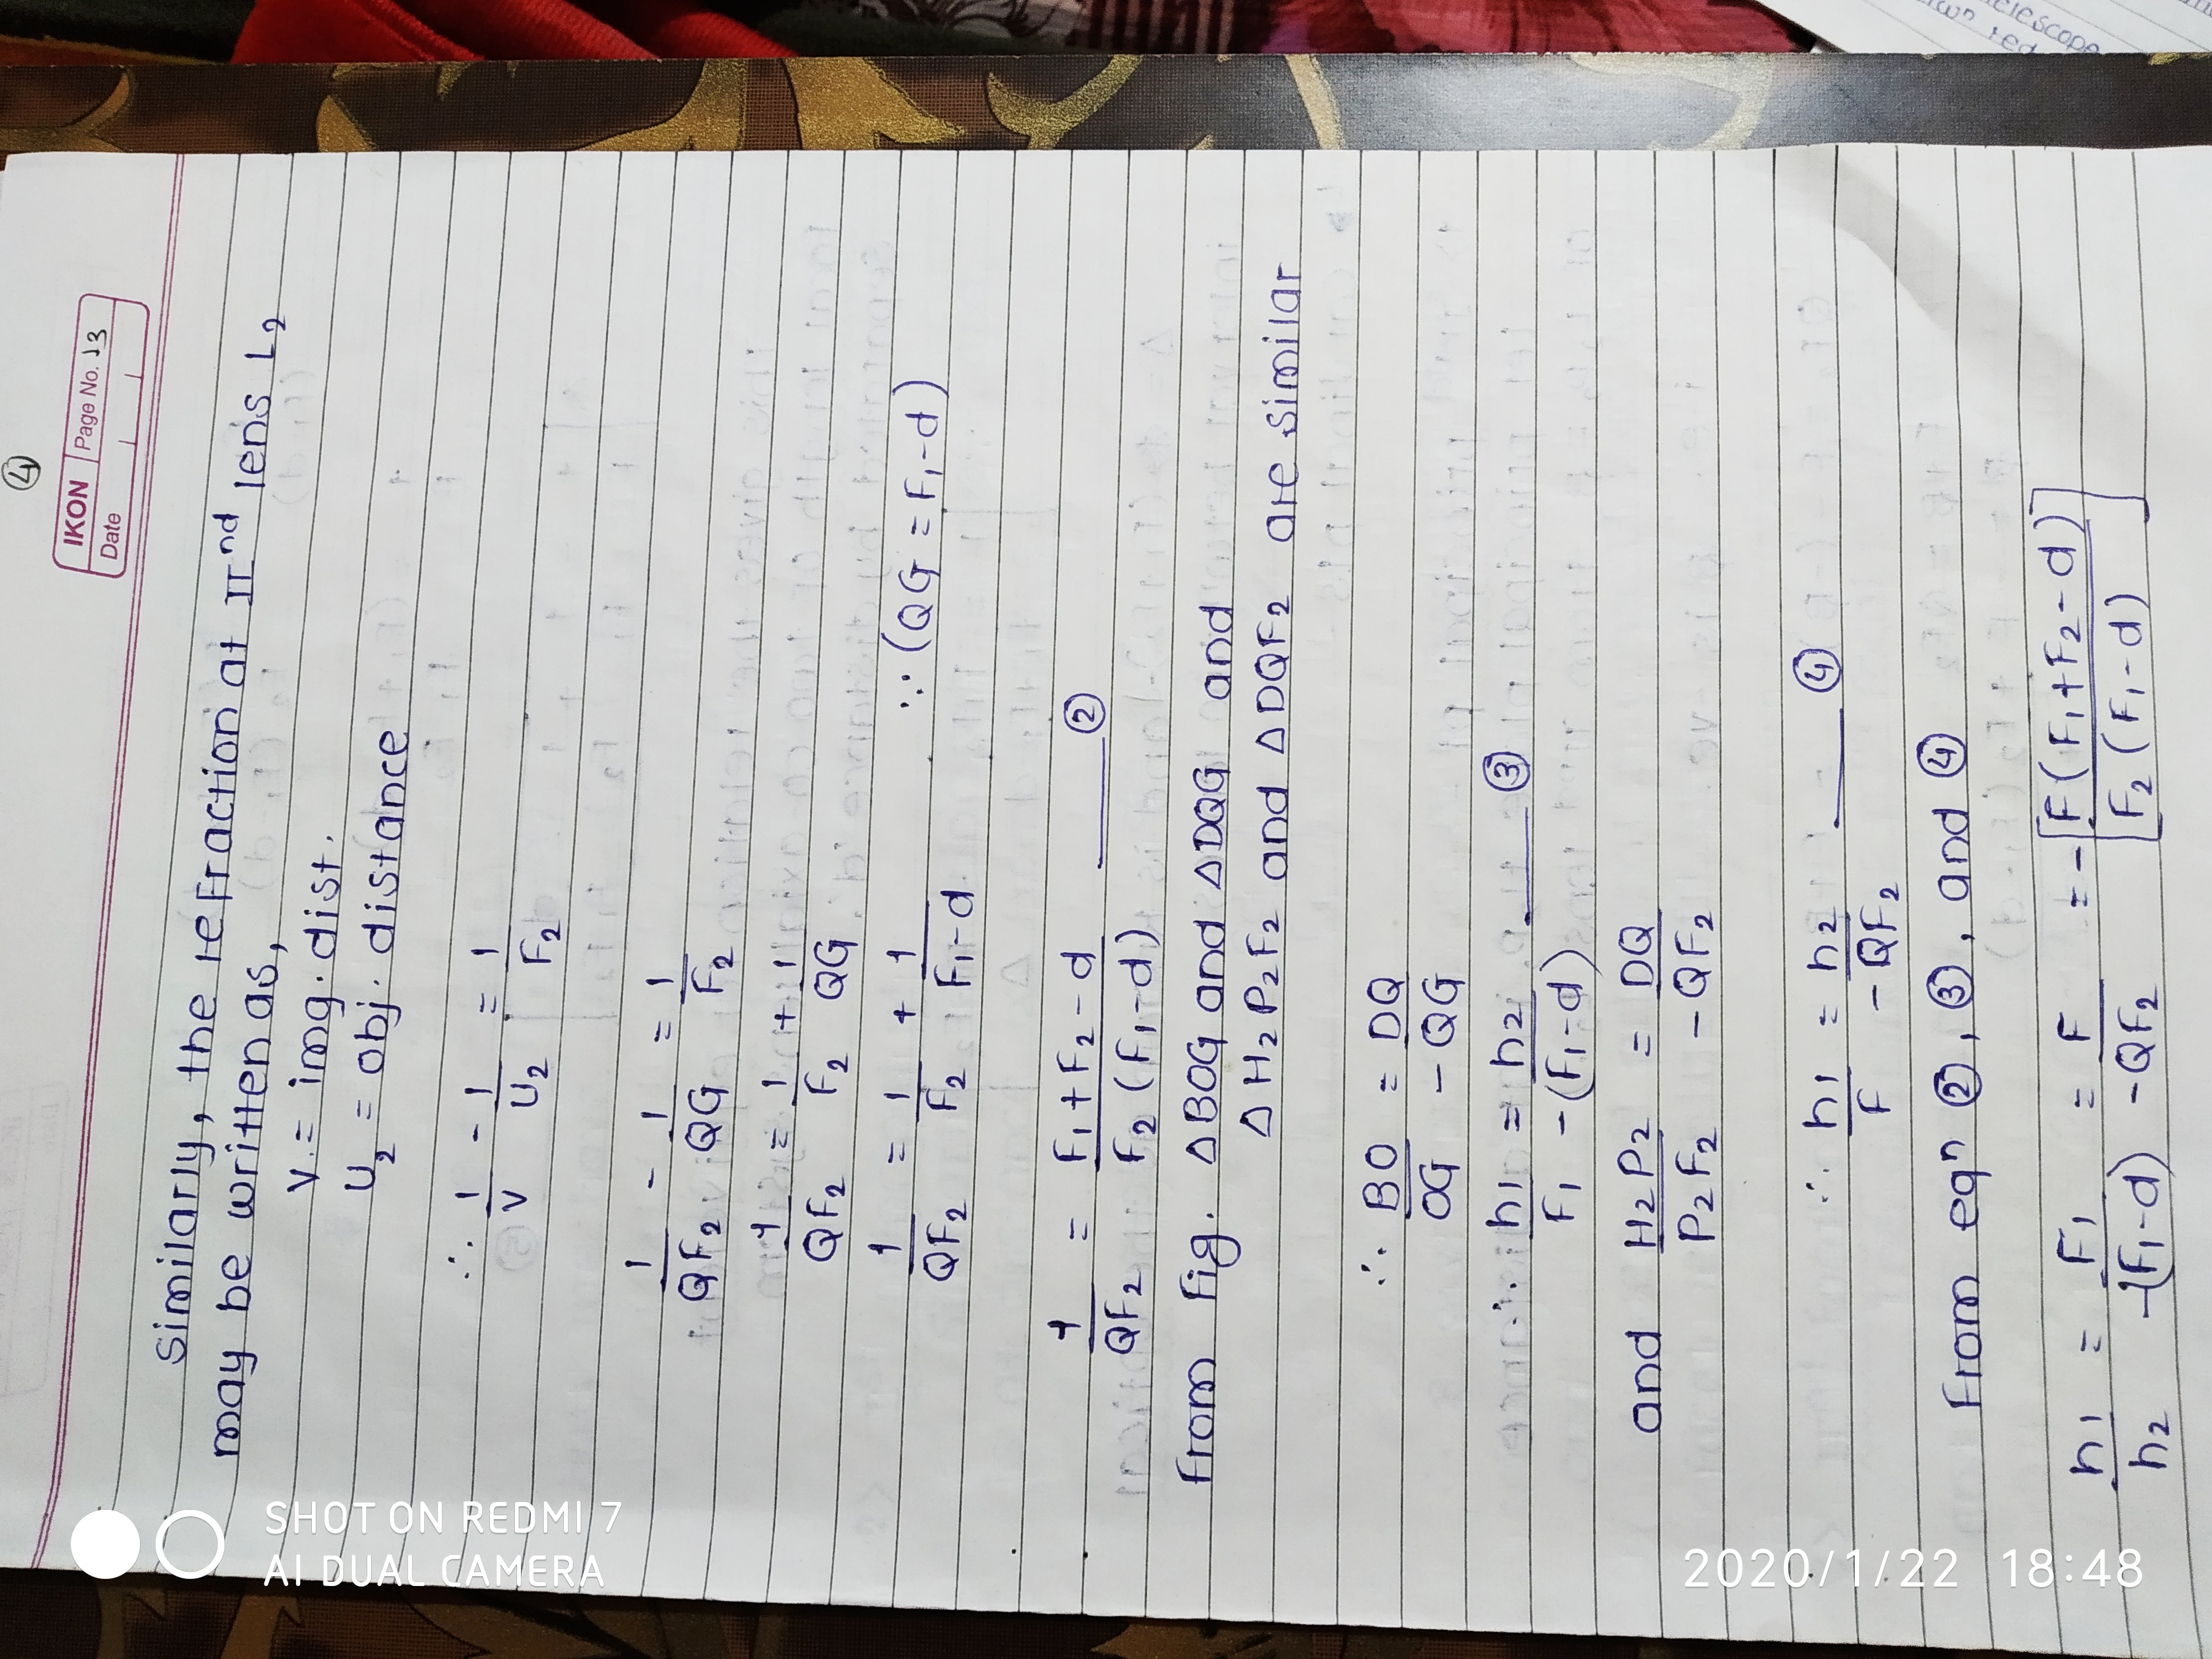 ④
IKON Page No. 13
Date
Similarly, the refraction at IInd lens L₂
may be written as,
V = img. dist.
U₂ = obj. distance
∴ 1/V - 1/U₂ = 1/F₂
1/QF₂ - 1/QG = 1/F₂
1/QF₂ = 1/F₂ + 1/QG
1/QF₂ = 1/F₂ + 1/F₁-d ∵ (QG = F₁-d)
1/QF₂ = F₁+F₂-d / F₂(F₁-d) ②
From Fig. △BOG and △DQG and
△H₂P₂F₂ and △DQF₂ are similar
∴ BO/OG = DQ/-QG
∴ h₁/F₁ = h₂/-(F₁-d) ③
and H₂P₂/P₂F₂ = DQ/-QF₂
∴ h₁/F = h₂/-QF₂ ④
From eqⁿ ②, ③, and ④
h₁/h₂ = F₁/-(F₁-d) = F/-QF₂ = -[F(F₁+F₂-d)/F₂(F₁-d)]
SHOT ON REDMI 7
AI DUAL CAMERA
2020/1/22 18:48